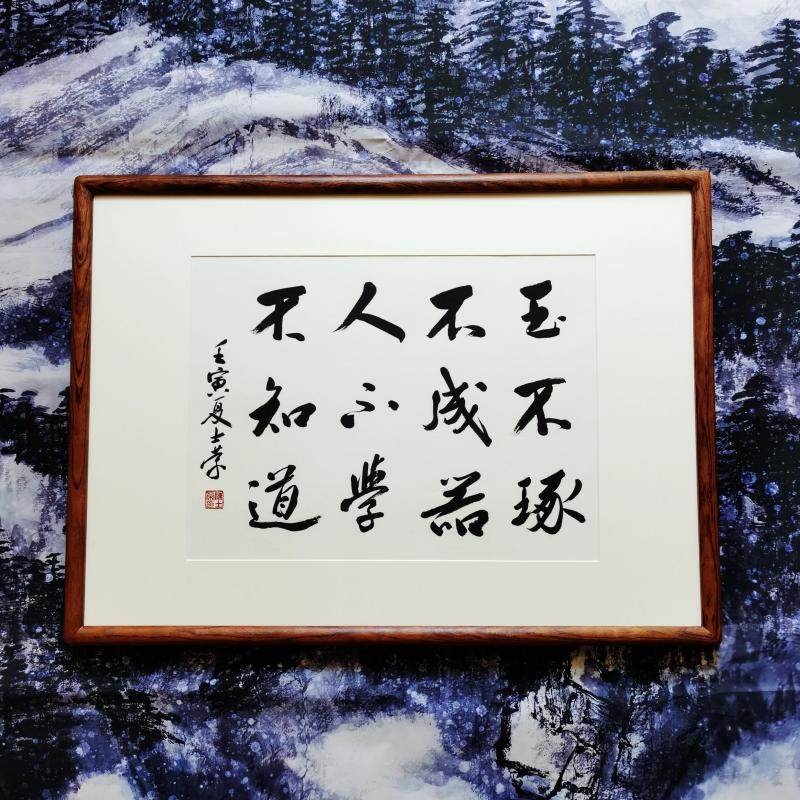 玉不琢
不成器
人不學
不知道
壬寅夏士荣